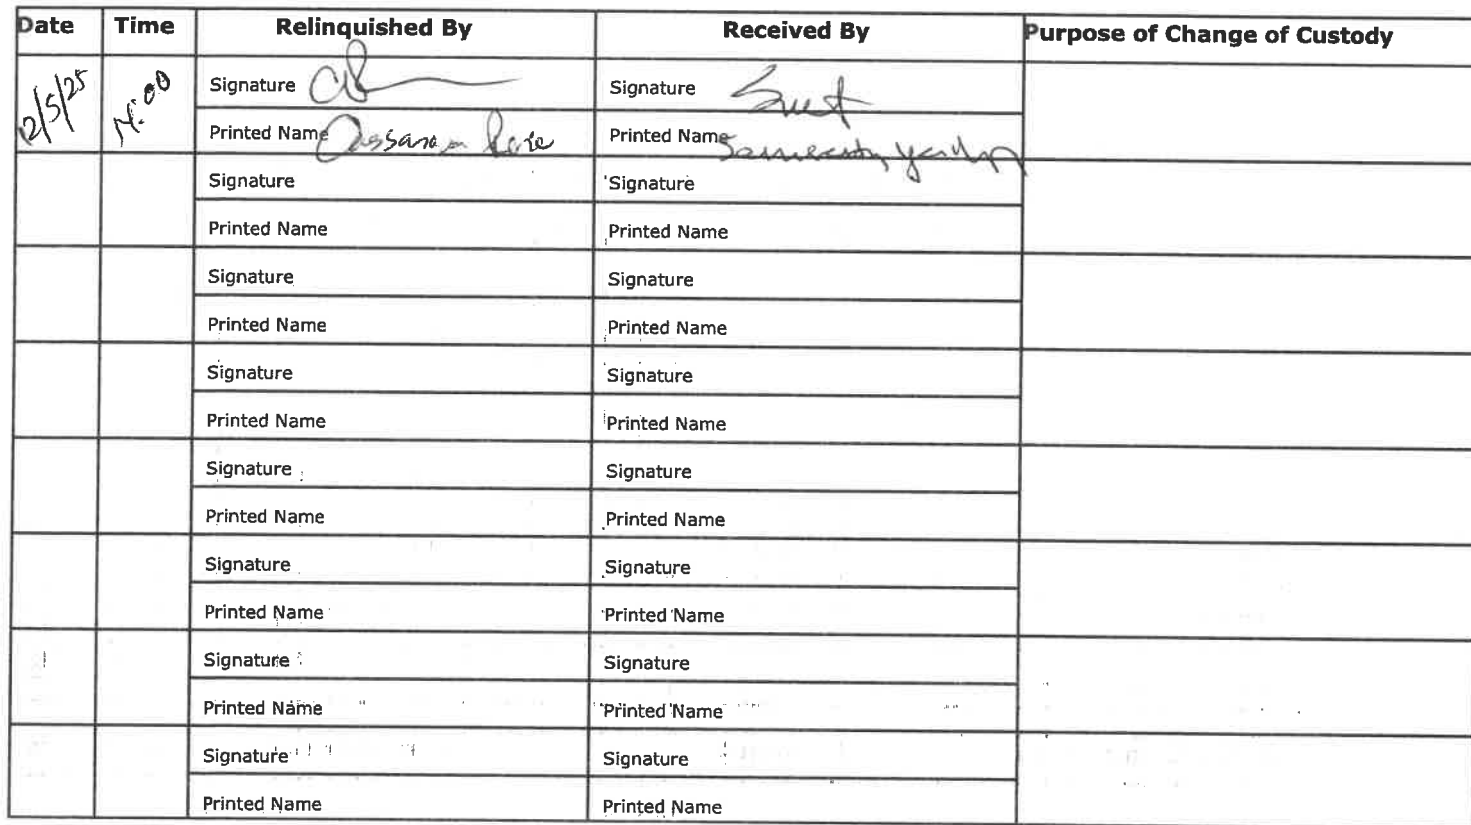 Date Time Relinquished By Received By Purpose of Change of Custody
12/5/25 Signature Signature
Printed Name Printed Name
Signature Signature
Printed Name Printed Name
Signature Signature
Printed Name Printed Name
Signature Signature
Printed Name Printed Name
Signature Signature
Printed Name Printed Name
Signature Signature
Printed Name Printed Name
Signature Signature
Printed Name Printed Name
Signature Signature
Printed Name Printed Name